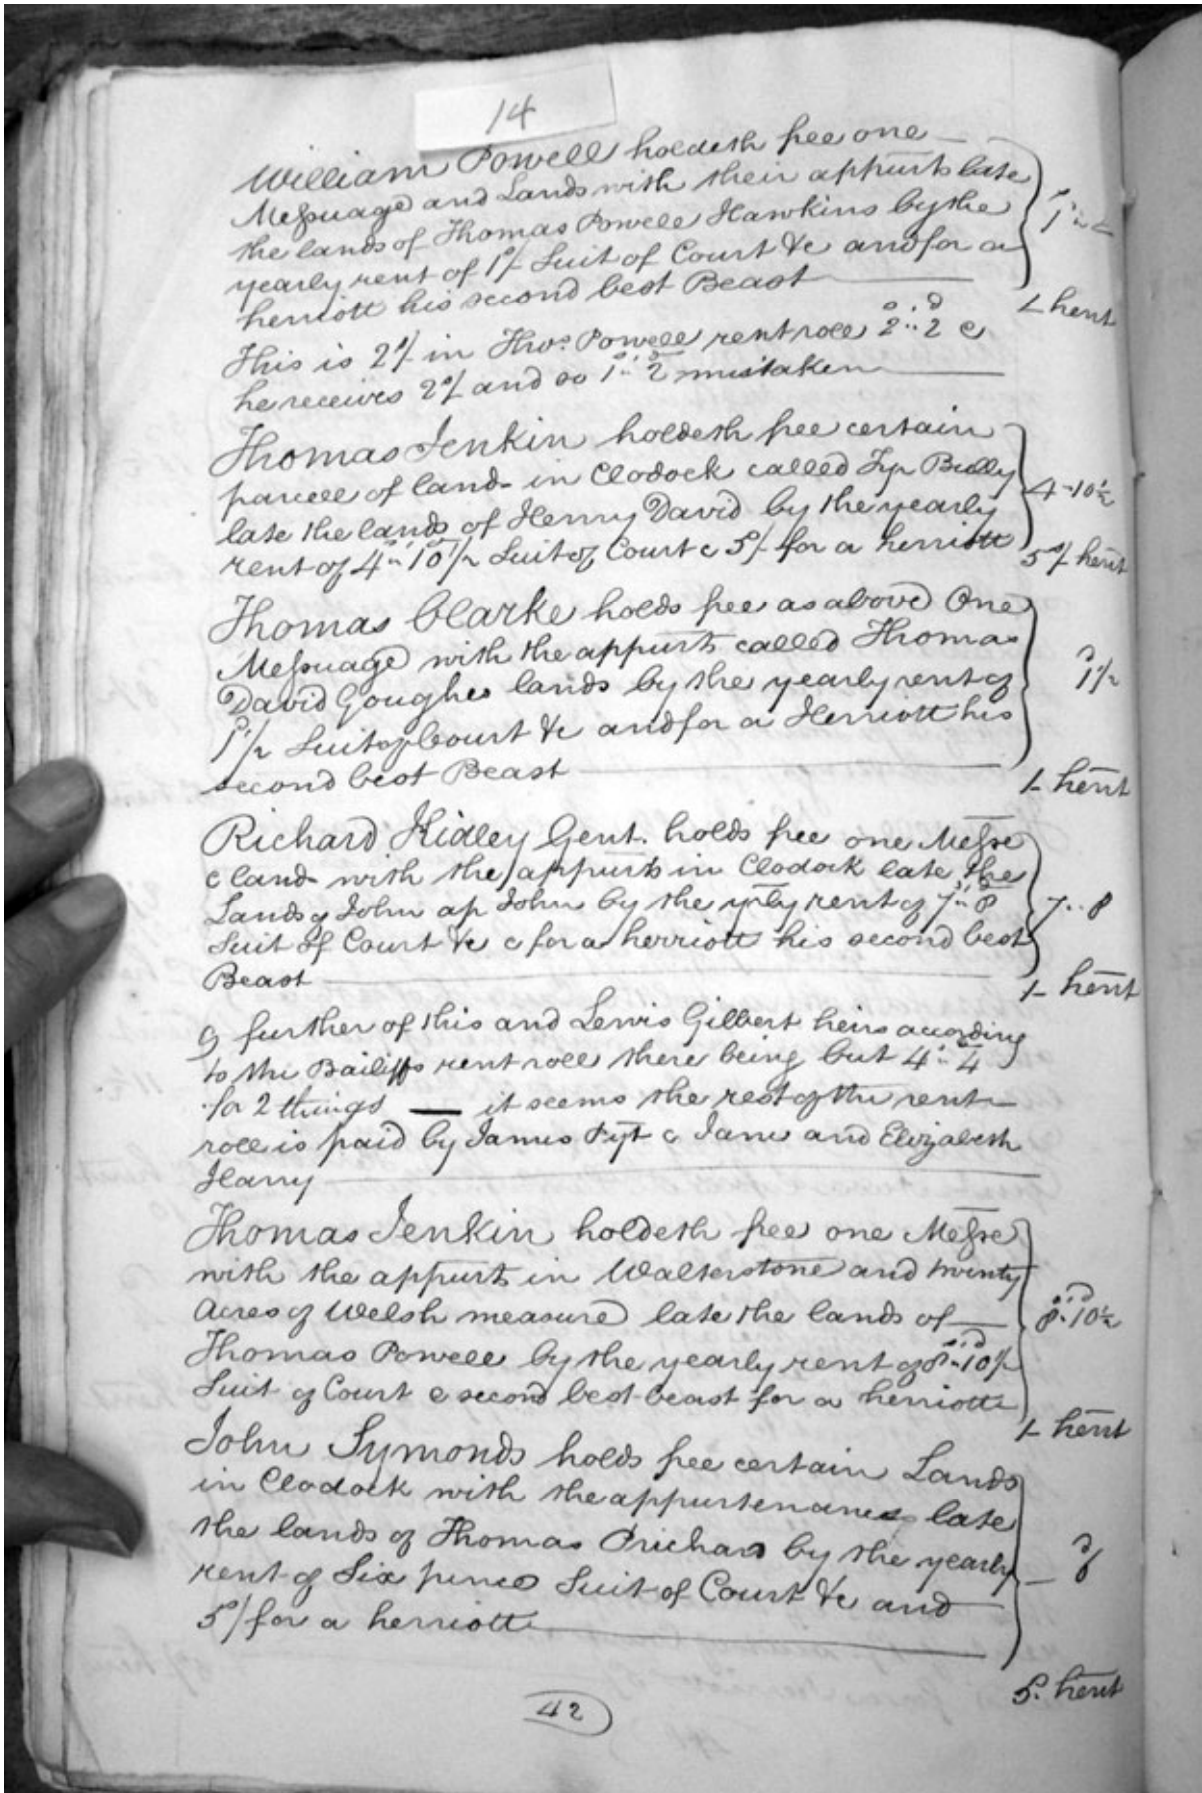 14
William Powell holdeth free one
Messuage and Lands with their appurts late
the lands of Thomas Powell Hawkins by the
yearly rent of 1s/- Suit of Court &c and for a
herriott his second best Beast
1 -
1- herit
This is 2s/- in Thos. Powell rent role 2s..2d &
he receives 2s/- and so 1s..2d mistaken
Thomas Jenkin holdeth free certain
parcell of land in Clodock called Tyr Bully
late the lands of Henry David by the yearly
rent of 4s..10d1/2 Suit of Court & 5s/- for a herriott
4-10½
5s/ herit
Thomas Clarke holds free as above One
Messuage with the appurts called Thomas
David Goughes lands by the yearly rent of
1d1/2 Suit of Court &c and for a Herriott his
second best Beast
1d1/2
1- herit
Richard Kidley Gent. holds free one Messe
& land with the appurts in Clodock late the
Lands of John ap John by the yrly rent of 7s..8d
Suit of Court &c & for a herriott his second best
Beast
7..8
1- herit
Q further of this and Lewis Gilbert heirs according
to the Bailiffs rent role there being but 4s..4d
for 2 things — it seems the rest of the rent
role is paid by James Pyt & Jane and Elizabeth
Harry
Thomas Jenkin holdeth free one Messe
with the appurts in Walterstone and twenty
Acres of Welsh measure late the lands of
Thomas Powell by the yearly rent of 8s..10d1/2
Suit of Court & second best beast for a herriott
8s..10d½
1- herit
John Symonds holds free certain Lands
in Clodock with the appurtenances late
the lands of Thomas Prichard by the yearly
rent of Six pence Suit of Court &c and
5s/ for a herriott
- 6d
5s. herit
42